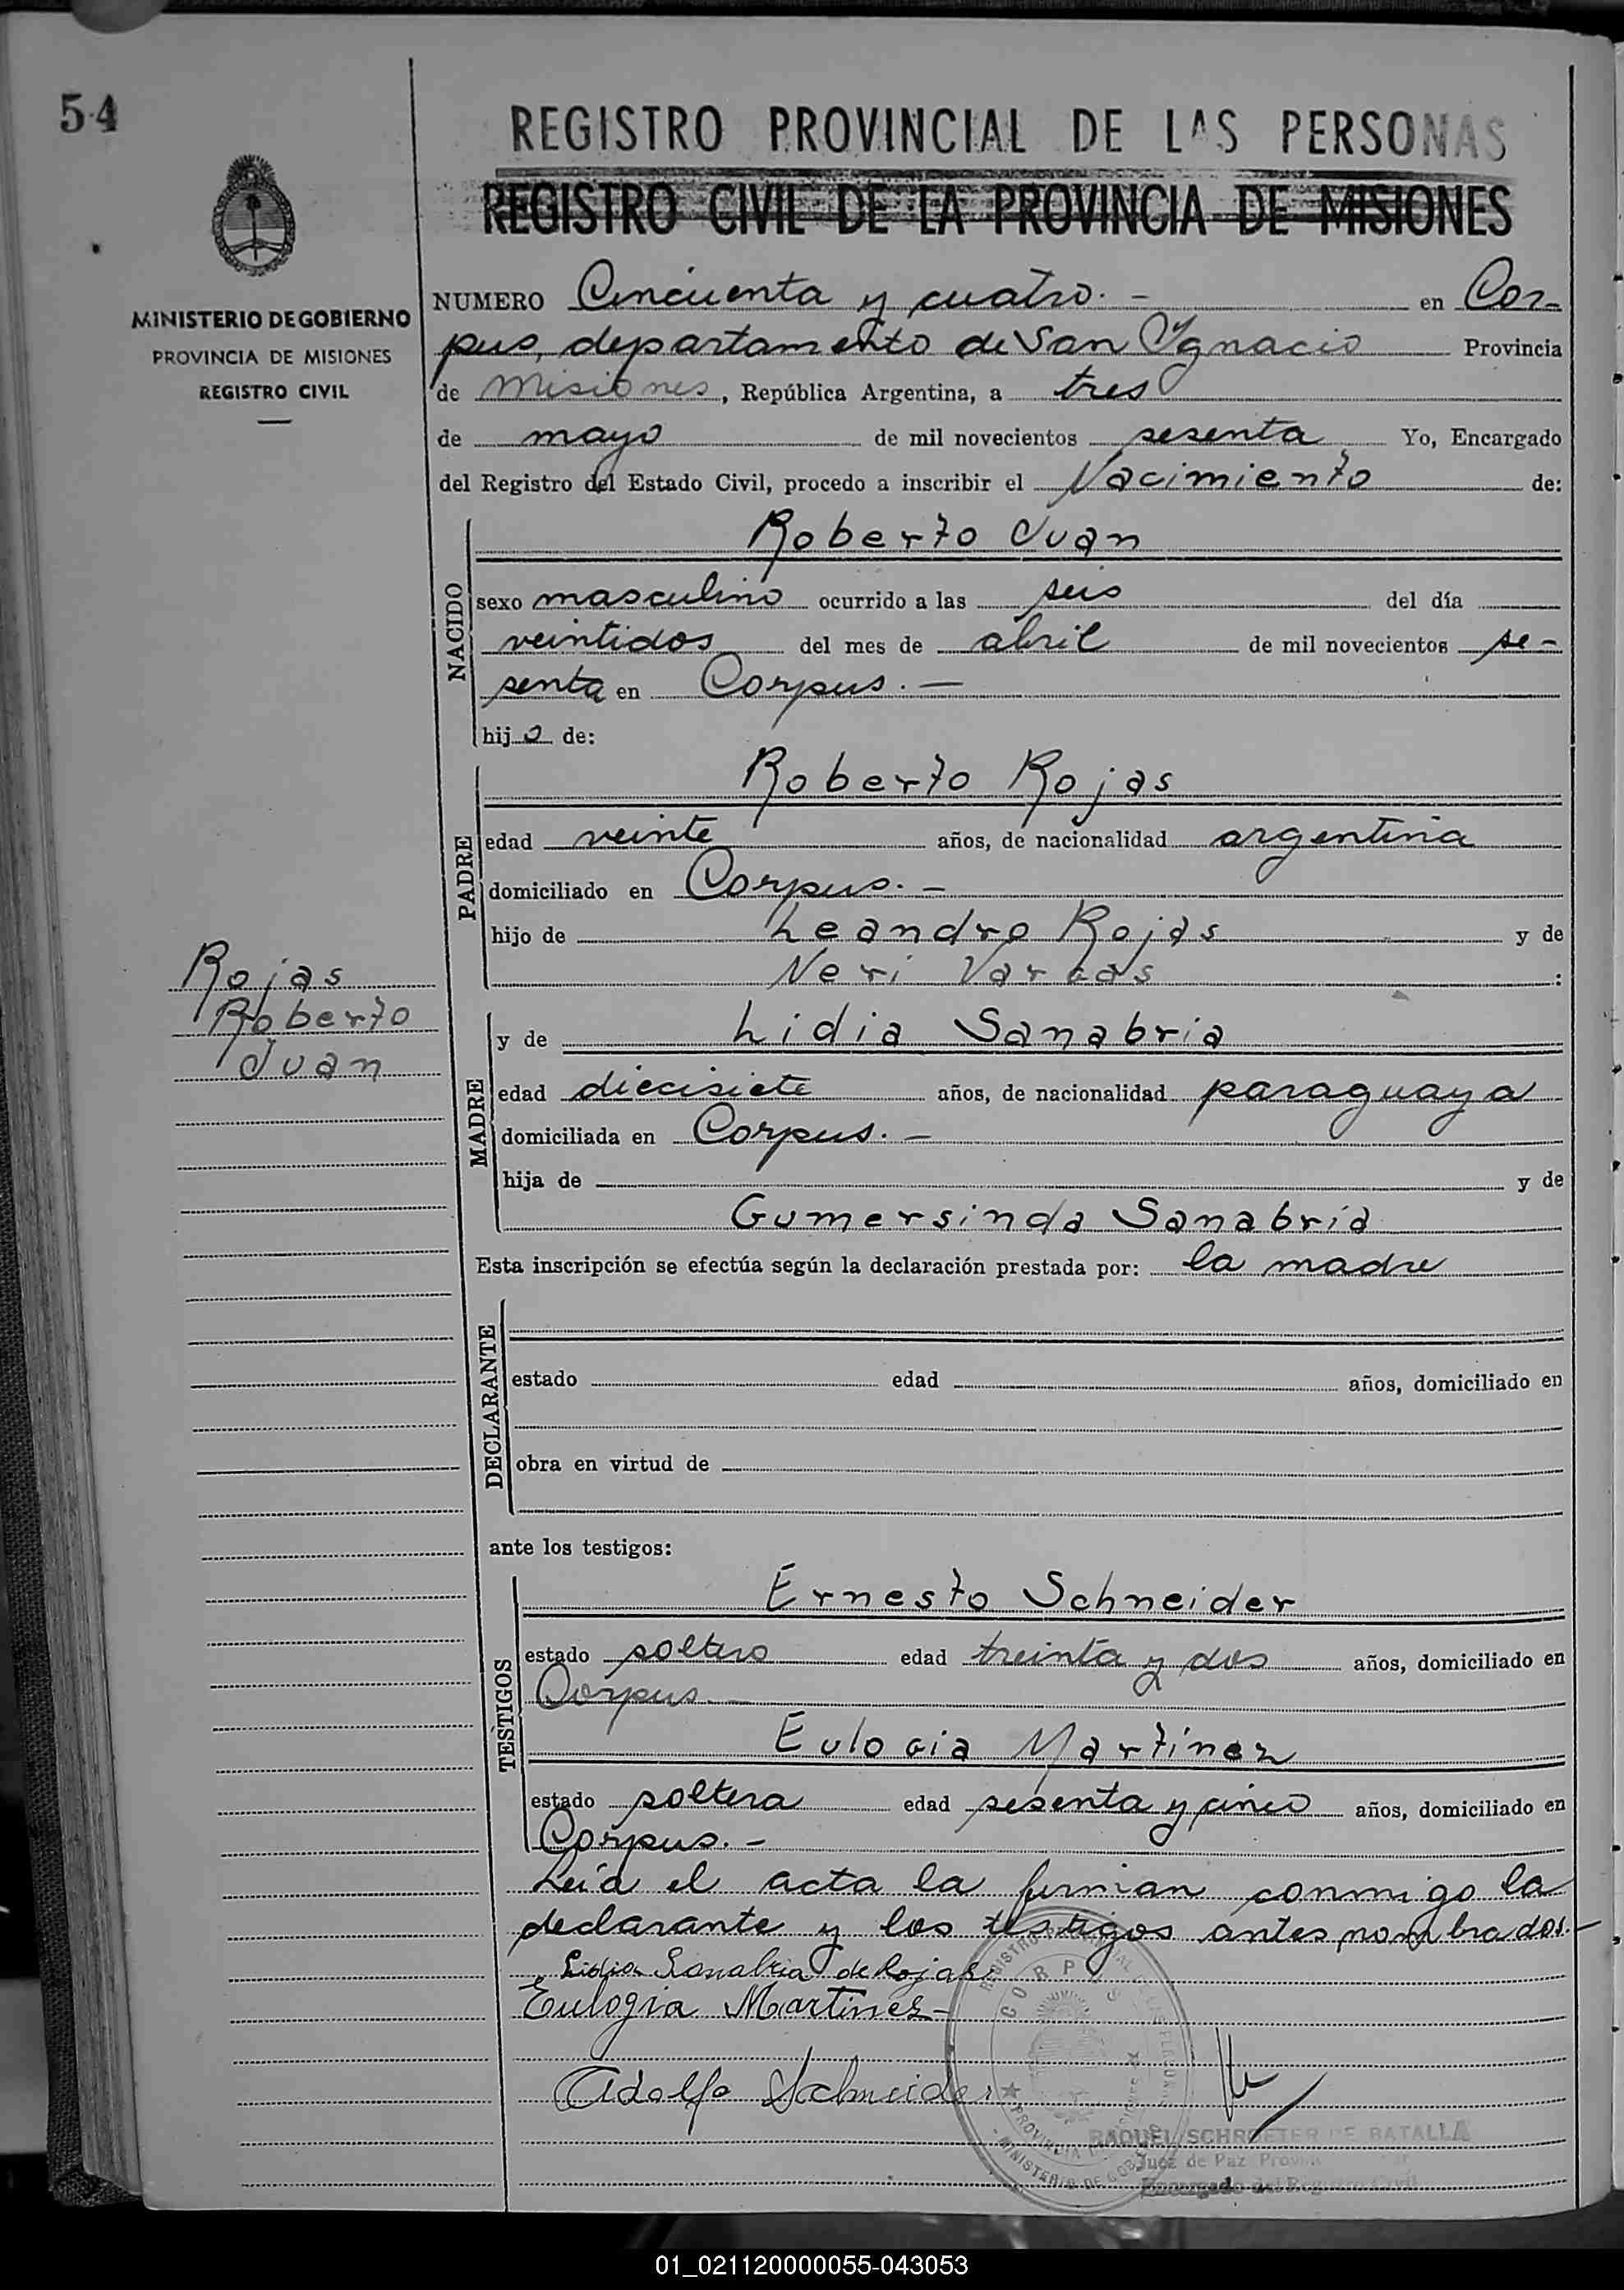 54
REGISTRO PROVINCIAL DE LAS PERSONAS
REGISTRO CIVIL DE LA PROVINCIA DE MISIONES
MINISTERIO DE GOBIERNO
PROVINCIA DE MISIONES
REGISTRO CIVIL
NUMERO Cincuenta y cuatro. - en Cor-
pus, departamento de San Ygnacio Provincia
de Misiones, República Argentina, a tres
de mayo de mil novecientos sesenta Yo, Encargado
del Registro del Estado Civil, procedo a inscribir el Nacimiento de:
NACIDO
Roberto Juan
sexo masculino ocurrido a las seis del día
veintidos del mes de abril de mil novecientos se-
senta en Corpus. -
hijo de:
PADRE
Roberto Rojas
edad veinte años, de nacionalidad argentina
domiciliado en Corpus. -
hijo de Leandro Rojas y de
Neri Vargas :
Rojas
Roberto
Juan
MADRE
y de Lidia Sanabria
edad diecisiete años, de nacionalidad paraguaya
domiciliada en Corpus. -
hija de y de
Gumersinda Sanabria
Esta inscripción se efectúa según la declaración prestada por: la madre
DECLARANTE
estado edad años, domiciliado en
obra en virtud de
ante los testigos:
TESTIGOS
Ernesto Schneider
estado soltero edad treinta y dos años, domiciliado en
Corpus. -
Eulogia Martínez
estado soltera edad sesenta y cinco años, domiciliado en
Corpus. -
Leída el acta la firman conmigo la
declarante y los testigos antes nombrados. -
Lidia Sanabria de Rojas
Eulogia Martinez -
Adolfo Schneider
REGISTRO PROVINCIAL DE LAS PERSONAS
CORPUS
PROVINCIA DE MISIONES
MINISTERIO DE GOBIERNO
RAQUEL SCHROETER DE BATALLA
Juez de Paz
Encargado del Registro Civil
01_021120000055-043053